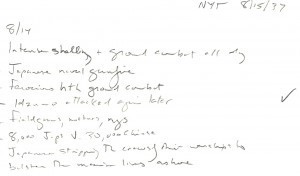 NYT 8/15/37
- 8/14
Intense shelling + ground combat all day
Japanese naval gunfire
Ferocious ground combat
attacked again later
- Fieldguns, mortars, mgs
- 8,000 Japs V 30,000 Chinese
Japanese stripping the crews of their warships to
bolster the marine lines ashore